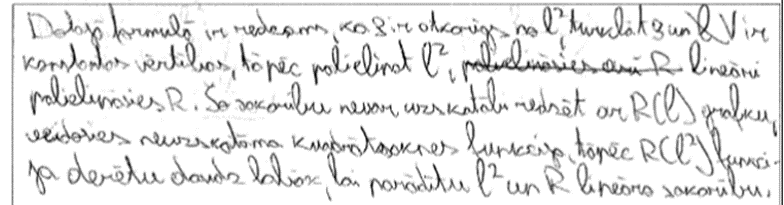 Dotajā formulā ir redzams, ka R ir atkarīgs no l², turklāt g un V ir
konstantas vērtības, tāpēc palielinot l², lineāri
palielināsies R. Šo sakarību nevar uzskatāmi redzēt ar R(l) grafiku,
veidosies neuzskatāma kvadrātsaknes funkcija, tāpēc R(l²) funkci-
ja derētu daudz labāk, lai parādītu l² un R lineāro sakarību.